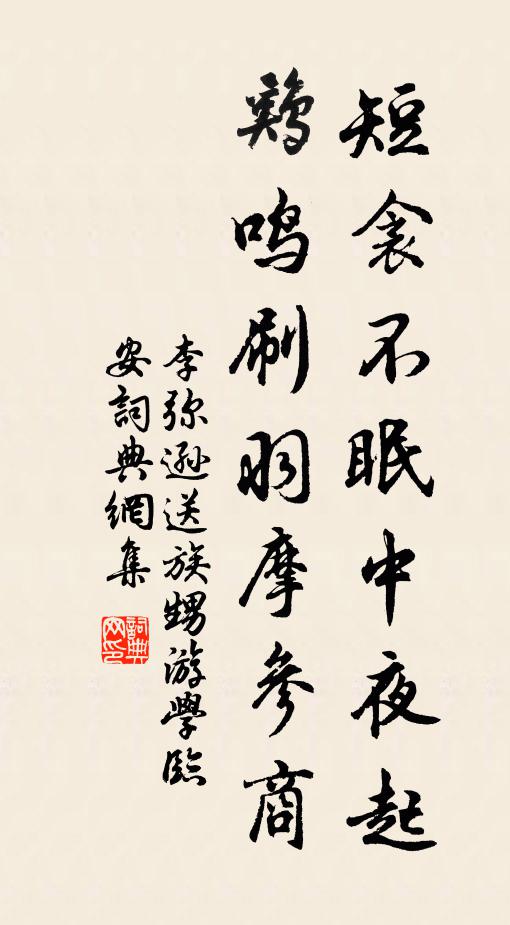 短衾不眠中夜起
鷄鳴刷羽摩參商
李弥遜送族甥游學臨
安詞典網集
詞典
网印